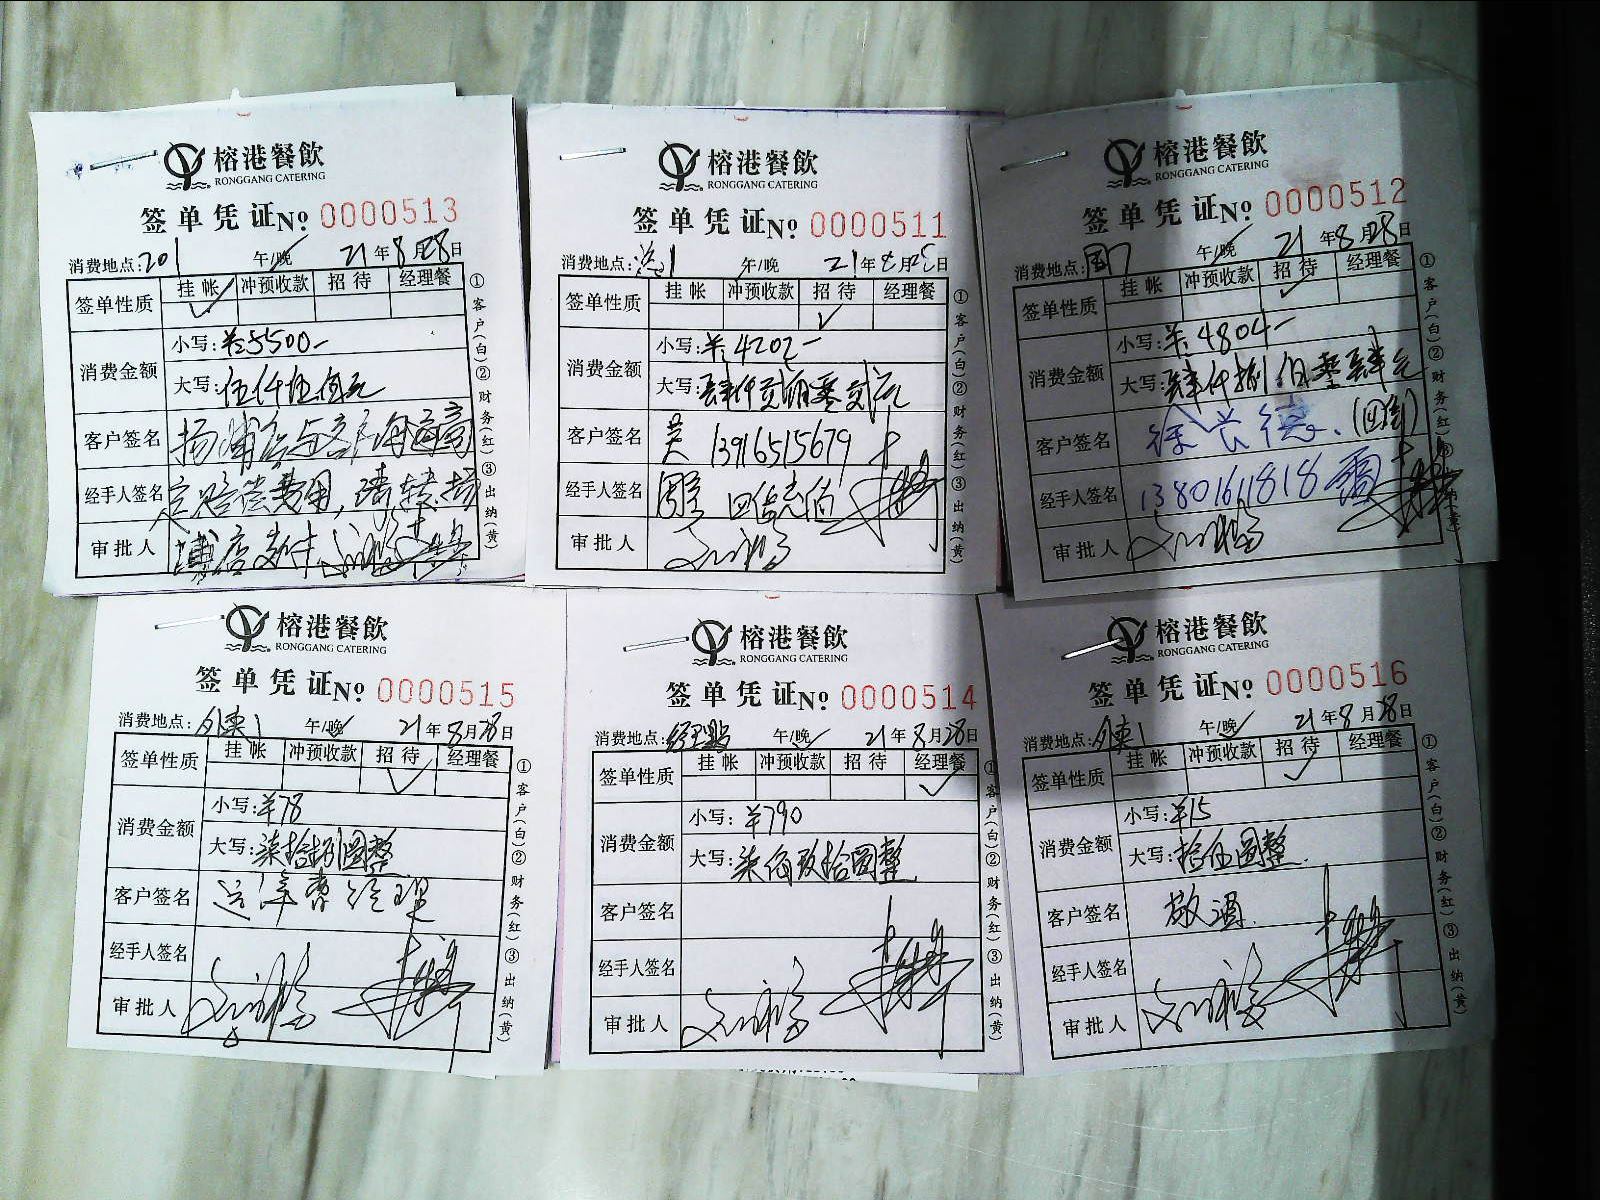 榕港餐飲
RONGGANG CATERING
签单凭证 № 0000513
消费地点:201 午/晚 21年8月28日
签单性质 挂帐 冲预收款 招待 经理餐
消费金额 小写:¥:5500-
大写:伍仟伍佰元
客户签名
经手人签名 定赔偿费用,请转
审批人
①客户(白)②财务(红)③出纳(黄)
榕港餐飲
RONGGANG CATERING
签单凭证 № 0000511
消费地点: 午/晚 21年8月28日
签单性质 挂帐 冲预收款 招待 经理餐
消费金额 小写:¥:4202-
大写:肆仟贰佰零贰元
客户签名 黄 13916515679
经手人签名
审批人
①客户(白)②财务(红)③出纳(黄)
榕港餐飲
RONGGANG CATERING
签单凭证 № 0000512
消费地点: 午/晚 21年8月28日
签单性质 挂帐 冲预收款 招待 经理餐
消费金额 小写:¥:4804-
大写:肆仟捌佰零肆元
客户签名 徐长德
经手人签名 13801611818
审批人
①客户(白)②财务(红)③出纳(黄)
榕港餐飲
RONGGANG CATERING
签单凭证 № 0000515
消费地点:外卖1 午/晚 21年8月28日
签单性质 挂帐 冲预收款 招待 经理餐
消费金额 小写:¥78
大写:柒拾捌圆整
客户签名 运泽曹经理
经手人签名
审批人
①客户(白)②财务(红)③出纳(黄)
榕港餐飲
RONGGANG CATERING
签单凭证 № 0000514
消费地点:经理 午/晚 21年8月28日
签单性质 挂帐 冲预收款 招待 经理餐
消费金额 小写:¥790
大写:柒佰玖拾圆整
客户签名
经手人签名
审批人
①客户(白)②财务(红)③出纳(黄)
榕港餐飲
RONGGANG CATERING
签单凭证 № 0000516
消费地点:外卖1 午/晚 21年8月28日
签单性质 挂帐 冲预收款 招待 经理餐
消费金额 小写:¥15
大写:拾伍圆整
客户签名 敬酒
经手人签名
审批人
①客户(白)②财务(红)③出纳(黄)